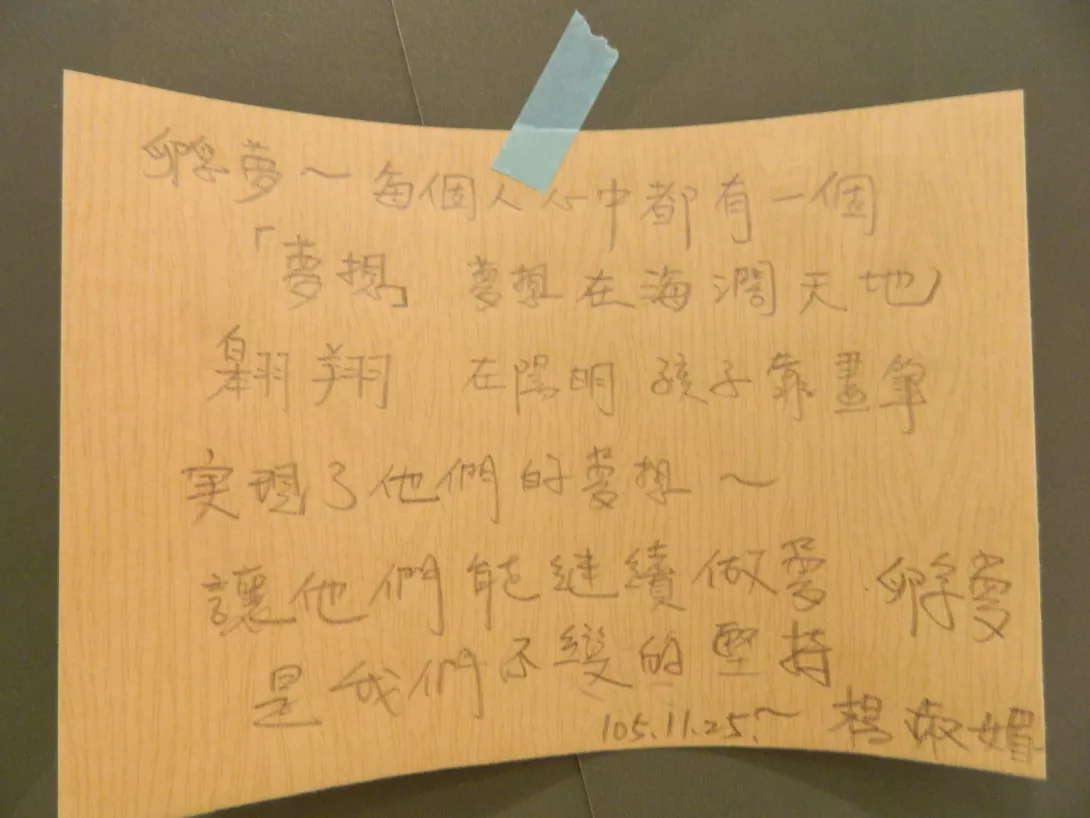 孵夢～每個人心中都有一個
「夢想」 夢想在海濶天地
翱翔 在陽明 孩子靠畫筆
実現了他們的夢想～
讓他們能継續做夢 孵夢
是我們不變的堅持
105.11.25~楊淑媚